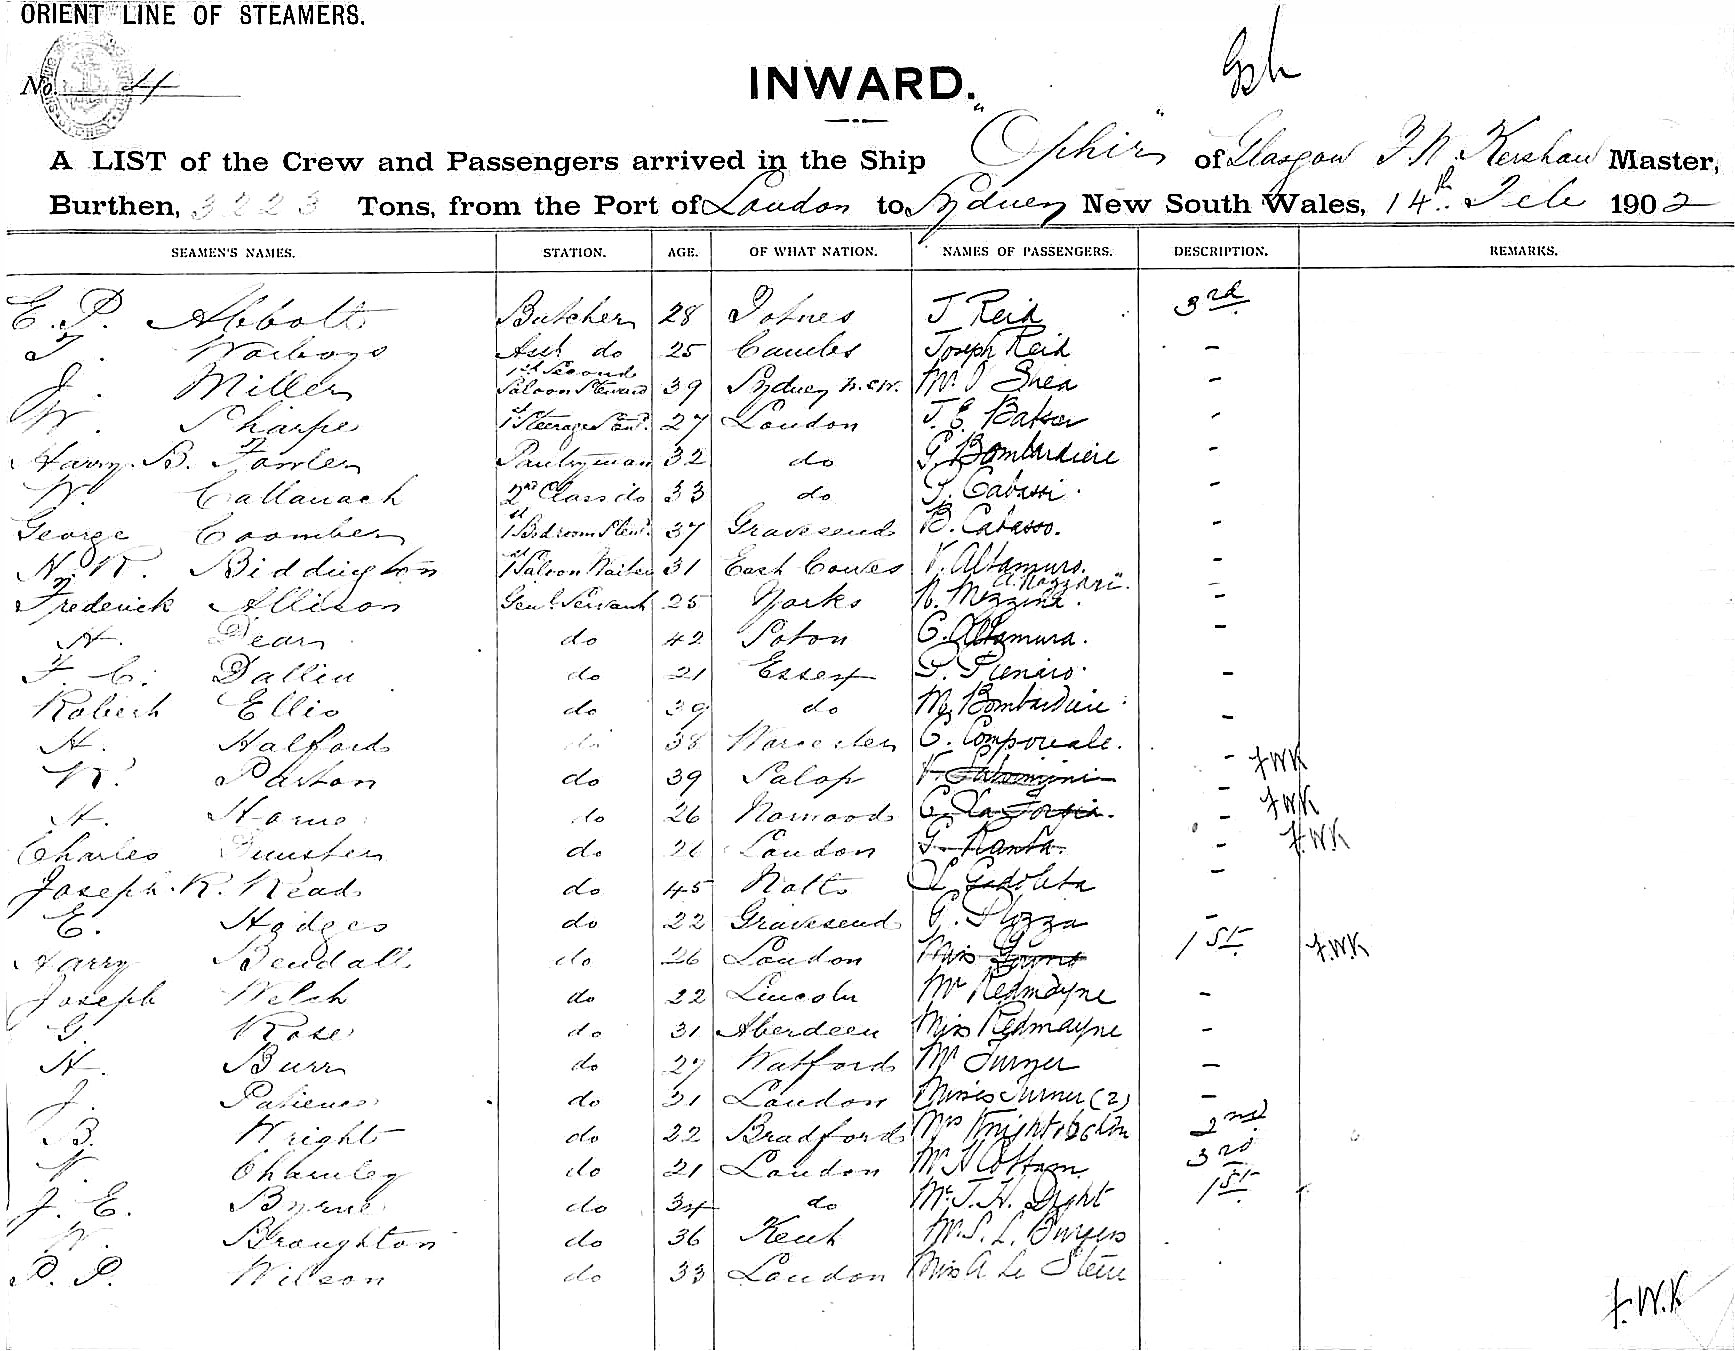 ORIENT LINE OF STEAMERS.
No. 4
INWARD.
A LIST of the Crew and Passengers arrived in the Ship "Ophir" of Glasgow F. W. Kershaw Master,
Burthen, 3223 Tons, from the Port of London to Sydney New South Wales, 14th Feb 1902
SEAMEN'S NAMES. STATION. AGE. OF WHAT NATION. NAMES OF PASSENGERS. DESCRIPTION. REMARKS.
E. P. Abbott Butcher 28 Totnes J Reid 3rd
T. Warboys Asst do 25 Joseph Reid -
J. Miller 1st Second Saloon Steward 39 Sydney N.S.W. Mr J Shea -
W. Sharpe 1st Steerage Stwd. 27 London J. E. Baker -
Harry B. Fowler Pantryman 32 do G. Bombardiere -
W. Callanach 2nd Class do 33 do P. Cabassi. -
George Coomber 1st Bedroom Stewd. 37 Gravesend B. Cabasso. -
N. R. Biddington 1st Saloon Waiter 31 East Cowes V. Altamuro. -
A. Nazzari.
Frederick Allison Genl. Servant 25 Yorks N. Mezzina. -
H. Dear do 42 Soton C. Altamura. -
F. C. Dallin do 21 Essex P. -
Robert Ellis do 39 do M. Bombardiere -
H. Halford do 38 Worcester C. Comporeale. -
W. Parton do 39 Salop V. - F.W.K
H. Horne do 26 Norwood C. La Forgia. - F.W.K
Charles Dunster do 26 London G. Ranta. - F.W.K
Joseph R. Read do 45 Notts -
E. Hodges do 22 Gravesend G. Plozza -
Harry Bendall do 26 London Miss 1st F.W.K
Joseph Welch do 22 Lincoln Mr Redmayne -
G. Rose do 31 Aberdeen Miss Redmayne -
H. Burr do 27 Watford Mr Turner -
J. Patience do 31 London Misses Turner (2) -
B. Wright do 22 Bradford Mrs 2nd
W. Charnley do 21 London Mr H Cottam 3rd
J. E. Byrne do 34 do Mr J. H. Dight 1st
W. Broughton do 36 Kent Mr S. L. Burgess
P. P. Wilson do 33 London Miss A Le
F.W.K